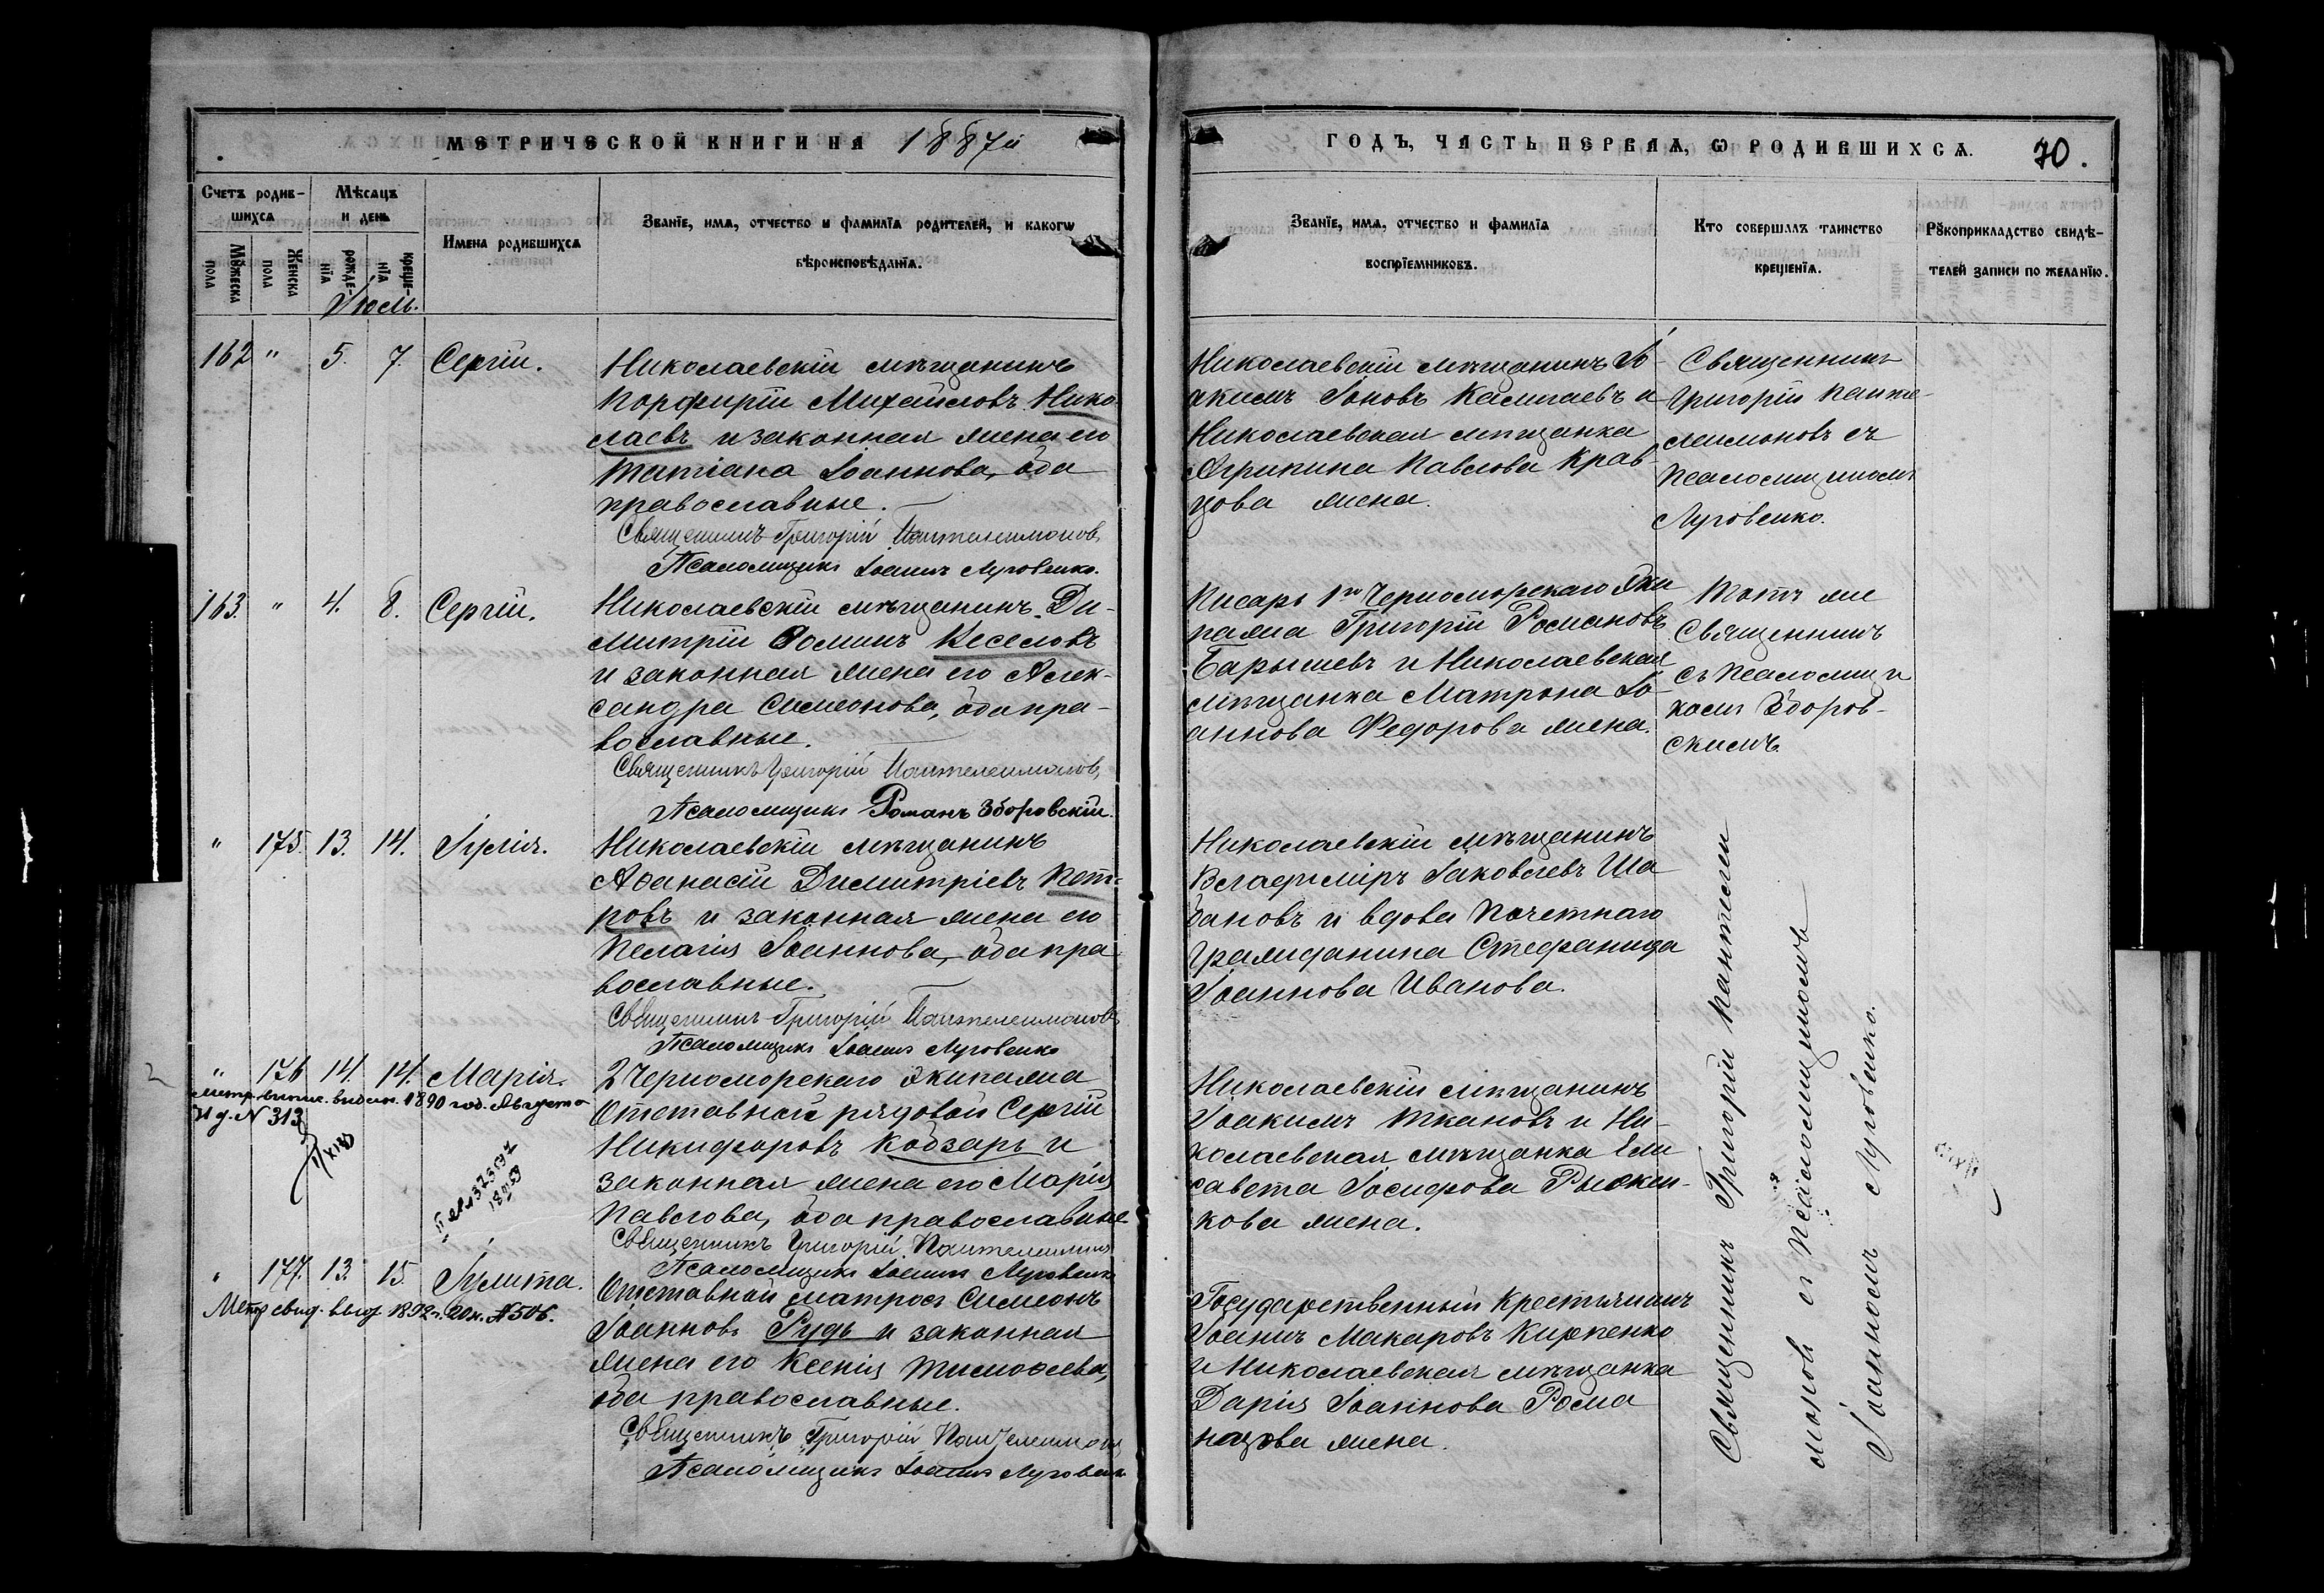 МЕТРИЧЕСКОЙ КНИГИ НА 1887й
ГОДЪ, ЧАСТЬ ПЕРВАЯ, Ѡ РОДИВШИХСѦ. 70.
Счетъ родив-
шихсѧ
Мѣсѧцъ
и день
Имена родившихсѧ
Званїе, имѧ, отчество и фамилїѧ родителей, и какогѡ
вѣроисповѣданїѧ.
Мꙋжеска пола
Женска пола
рожде-нїѧ
креще-нїѧ
Званїе, имѧ, отчество и фамилїѧ
воспрїемниковъ.
Кто совершалъ таинство
крещенїѧ.
Рꙋкоприкладство свидѣ-
телей записи по желанїю.
Іюль.
162 " 5. 7. Сергій.
Николаевскій мѣщанинъ
Порфирій Михайловъ Нико-
лаевъ и законная жена его
Татіана Іоаннова, оба
православные.
Священникъ Григорій Пантелеимоновъ
Псаломщикъ Іоаннъ Луговенко.
Николаевскій мѣщанинъ Іо-
акимъ Іоновъ Калигаевъ и
Николаевская мѣщанка
Агрипина Павлова Крав-
цова жена.
Священникъ
Григорій Панте-
леимоновъ съ
Псаломщикомъ
Луговенко.
163. " 4. 8. Сергій.
Николаевскій мѣщанинъ Ди-
митрій Ѳоминъ Веселовъ
и законная жена его Алек-
сандра Симеонова, оба пра-
вославные.
Священникъ Григорій Пантелеимоновъ
Псаломщикъ Романъ Зборовскій.
Писарь 1го Черноморскаго Эки
пажа Григорій Романовъ
Барышевъ и Николаевская
мѣщанка Матрона Іо-
аннова Федорова жена.
Тотъ же
Священникъ
съ Псаломщи
комъ Зборов-
скимъ
" 175. 13. 14. Іулія.
Николаевскій мѣщанинъ
Аѳанасій Димитріевъ Пет-
ровъ и законная жена его
Пелагія Іоаннова, оба пра
вославные.
Священникъ Григорій Пантелеимоновъ
Псаломщикъ Іоаннъ Луговенко
Николаевскій мѣщанинъ
Владиміръ Іаковлевъ Ша
бановъ и вдова Почетнаго
Гражданина Стефанида
Іоаннова Иванова.
" 176 14. 14. Марія.
Метр. выпис. выдан. 1890 год. Августа
И д. N 313
2 Черноморскаго Экипажа
Отставной рядовой Сергій
Никифоровъ Кобзарь и
законная жена его Марія
Павлова, оба православные
Священникъ Григорій Пантелеимоновъ
Псаломщикъ Іоаннъ Луговенко
Николаевскій мѣщанинъ
Іоакимъ Ткановъ и Ни-
колаевская мѣщанка Ели
савета Іосифова Рыжен-
кова жена.
" 177. 13. 15. Іулита.
Метр свид. выд. 1892 г. 20 н. N 506.
Отставной матросъ Симеонъ
Іоанновъ Рудь и законная
жена его Ксенія Тимоѳеева,
оба православные.
Священникъ Григорій Пантелеимоновъ
Псаломщикъ Іоаннъ Луговенко
Государственный Крестьянинъ
Іоаннъ Макаровъ Кирпенко
и Николаевская мѣщанка
Дарія Іоаннова Рома
нцова жена.
Священникъ Григорій Пантелеи
моновъ съ Псаломщикомъ
Іоанномъ Луговенко.